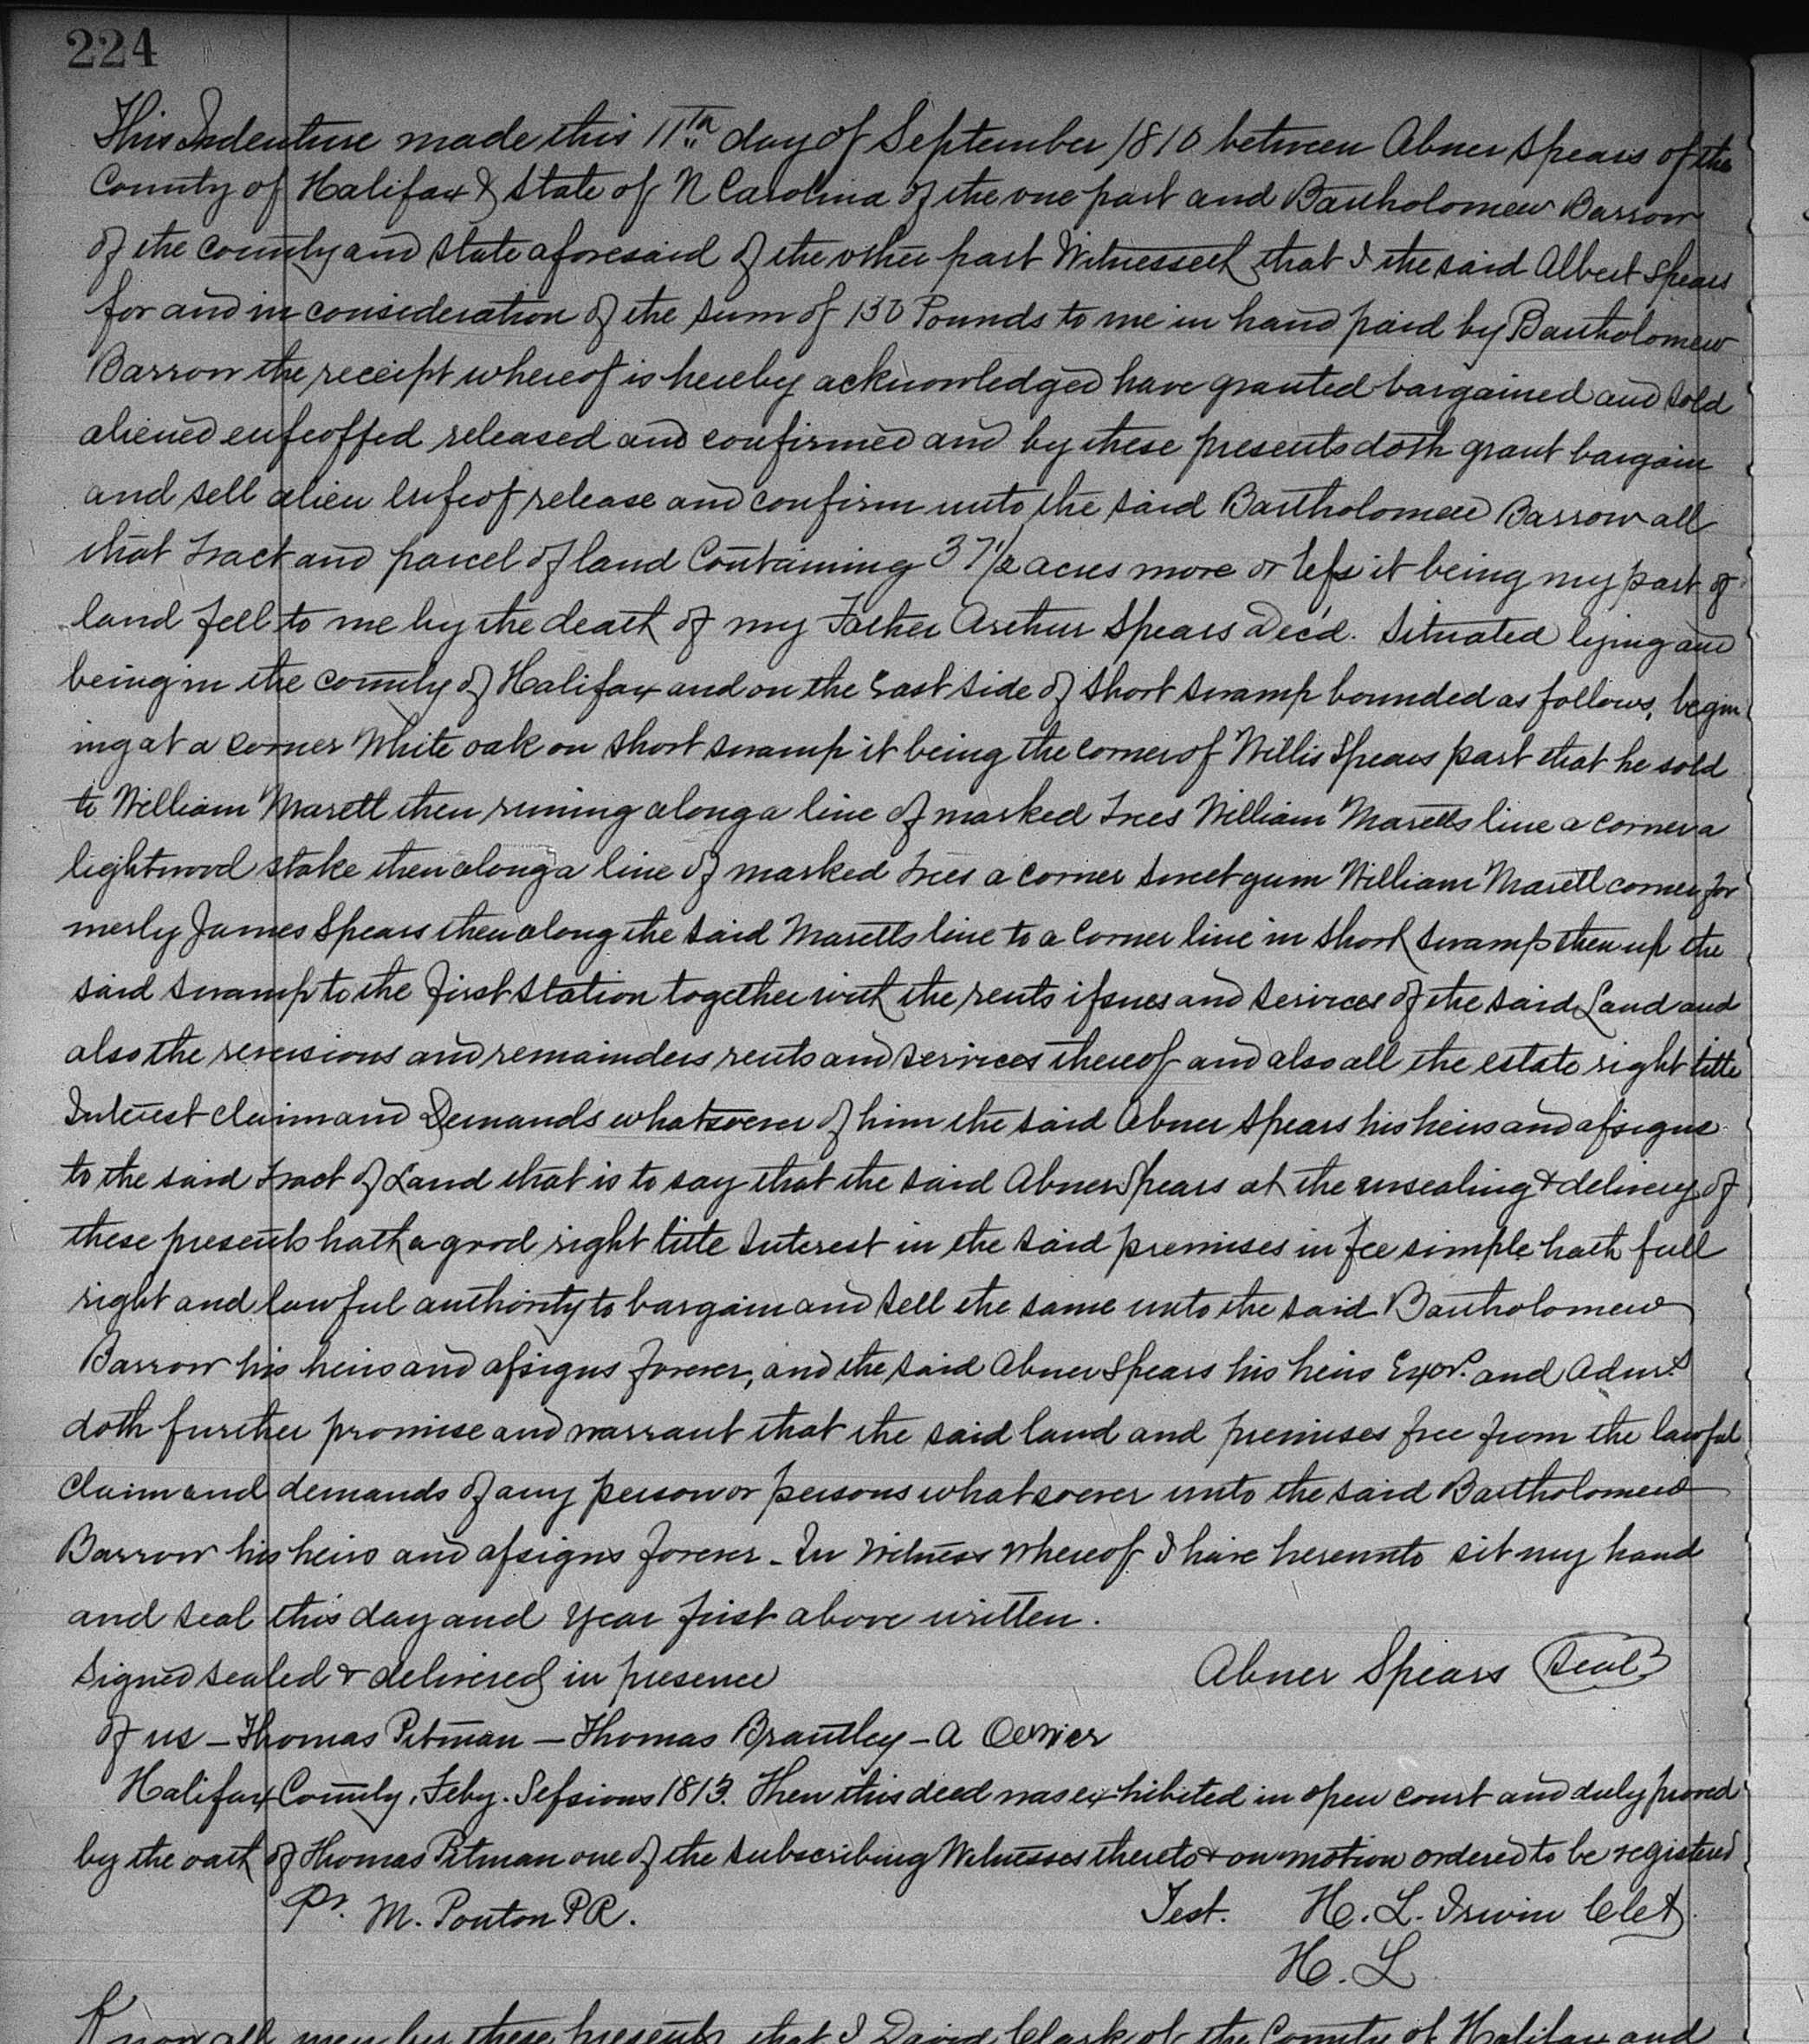 224
This Indenture made this 11th day of September 1810 between Abner Spears of the
County of Halifax & State of N Carolina of the one part and Bartholomew Barrow
of the county and state aforesaid of the other part Witnesseth that I the said Albert Spears
for and in consideration of the sum of 130 Pounds to me in hand paid by Bartholomew
Barrow the receipt whereof is hereby acknowledged have granted bargained and sold
aliened enfeoffed released and confirmed and by these presents doth grant bargain
and sell alien enfeof release and confirm unto the said Bartholomew Barrow all
that tract and parcel of land Containing 37 1/2 acres more or less it being my part of
land fell to me by the death of my Father Arthur Spears Decd. Situated lying and
being in the county of Halifax and on the East side of Short swamp bounded as follows, begin
ing at a corner White oak on Short swamp it being the corner of Willis Spears part that he sold
to William Marett then runing along a line of marked trees William Maretts line a corner a
lightwood stake then along a line of marked trees a corner sweet gum William Marett corner for
merly James Spears then along the said Maretts line to a corner line in Short swamp then up the
said swamp to the first station together with the rents issues and services of the said Land and
also the reversions and remainders rents and services thereof and also all the estate right title
Interest claim and Demands whatsoever of him the said Abner Spears his heirs and assigns
to the said tract of Land that is to say that the said Abner Spears at the ensealing & delivery of
these presents hath a good right title Interest in the said premises in fee simple hath full
right and lawful authority to bargain and sell the same unto the said Bartholomew
Barrow his heirs and assigns forever, and the said Abner Spears his heirs Exor. and Admr.
doth further promise and warrant that the said land and premises free from the lawful
claim and demands of any person or persons whatsoever unto the said Bartholomew
Barrow his heirs and assigns forever - In Witness Whereof I have hereunto sit my hand
and seal this day and year first above written.
Signed sealed & delivered in presence Abner Spears Seal
of us - Thomas Pitman - Thomas Brantley - A
Halifax County, Feby. Sessions 1813. Then this deed was exhibited in open court and duly proved
by the oath of Thomas Pitman one of the subscribing Witnesses thereto & on motion ordered to be registered
Pr. M. Ponton P.R. Test. H. L. Irwin Clet
H. L
Know all men by these presents that I David Clark of the County of Halifax and